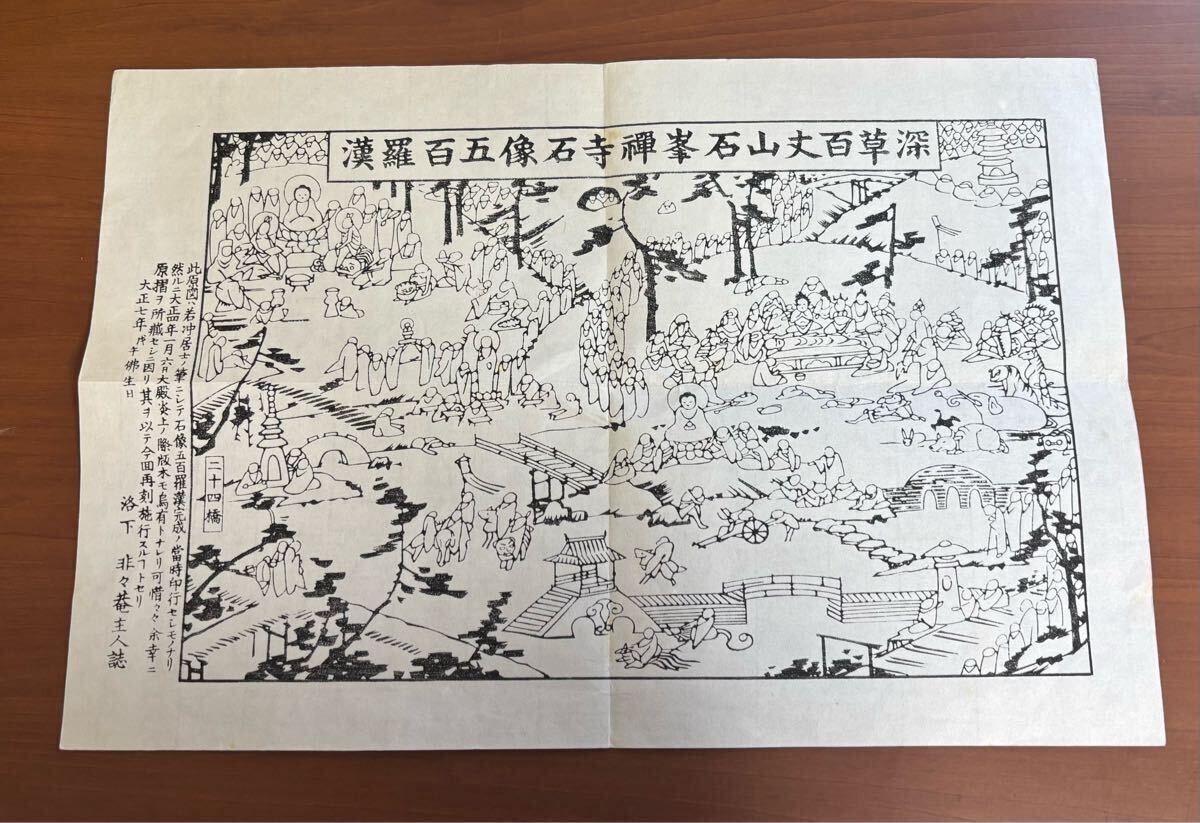 深草百丈山石峯禅寺石像五百羅漢
此原図ハ若冲居士ノ筆ニシテ石像五百羅漢完成ノ當時印行セシモノナリ
然ルニ大正四年一月六日大殿炎上ノ際版木モ烏有トナレリ可惜々々余幸ニ
原摺ヲ所蔵セシニ因リ其ヲ以テ今回再刻施行スルコトセリ
大正七年戊午佛生日
洛下 非々菴主人誌
二十四橋